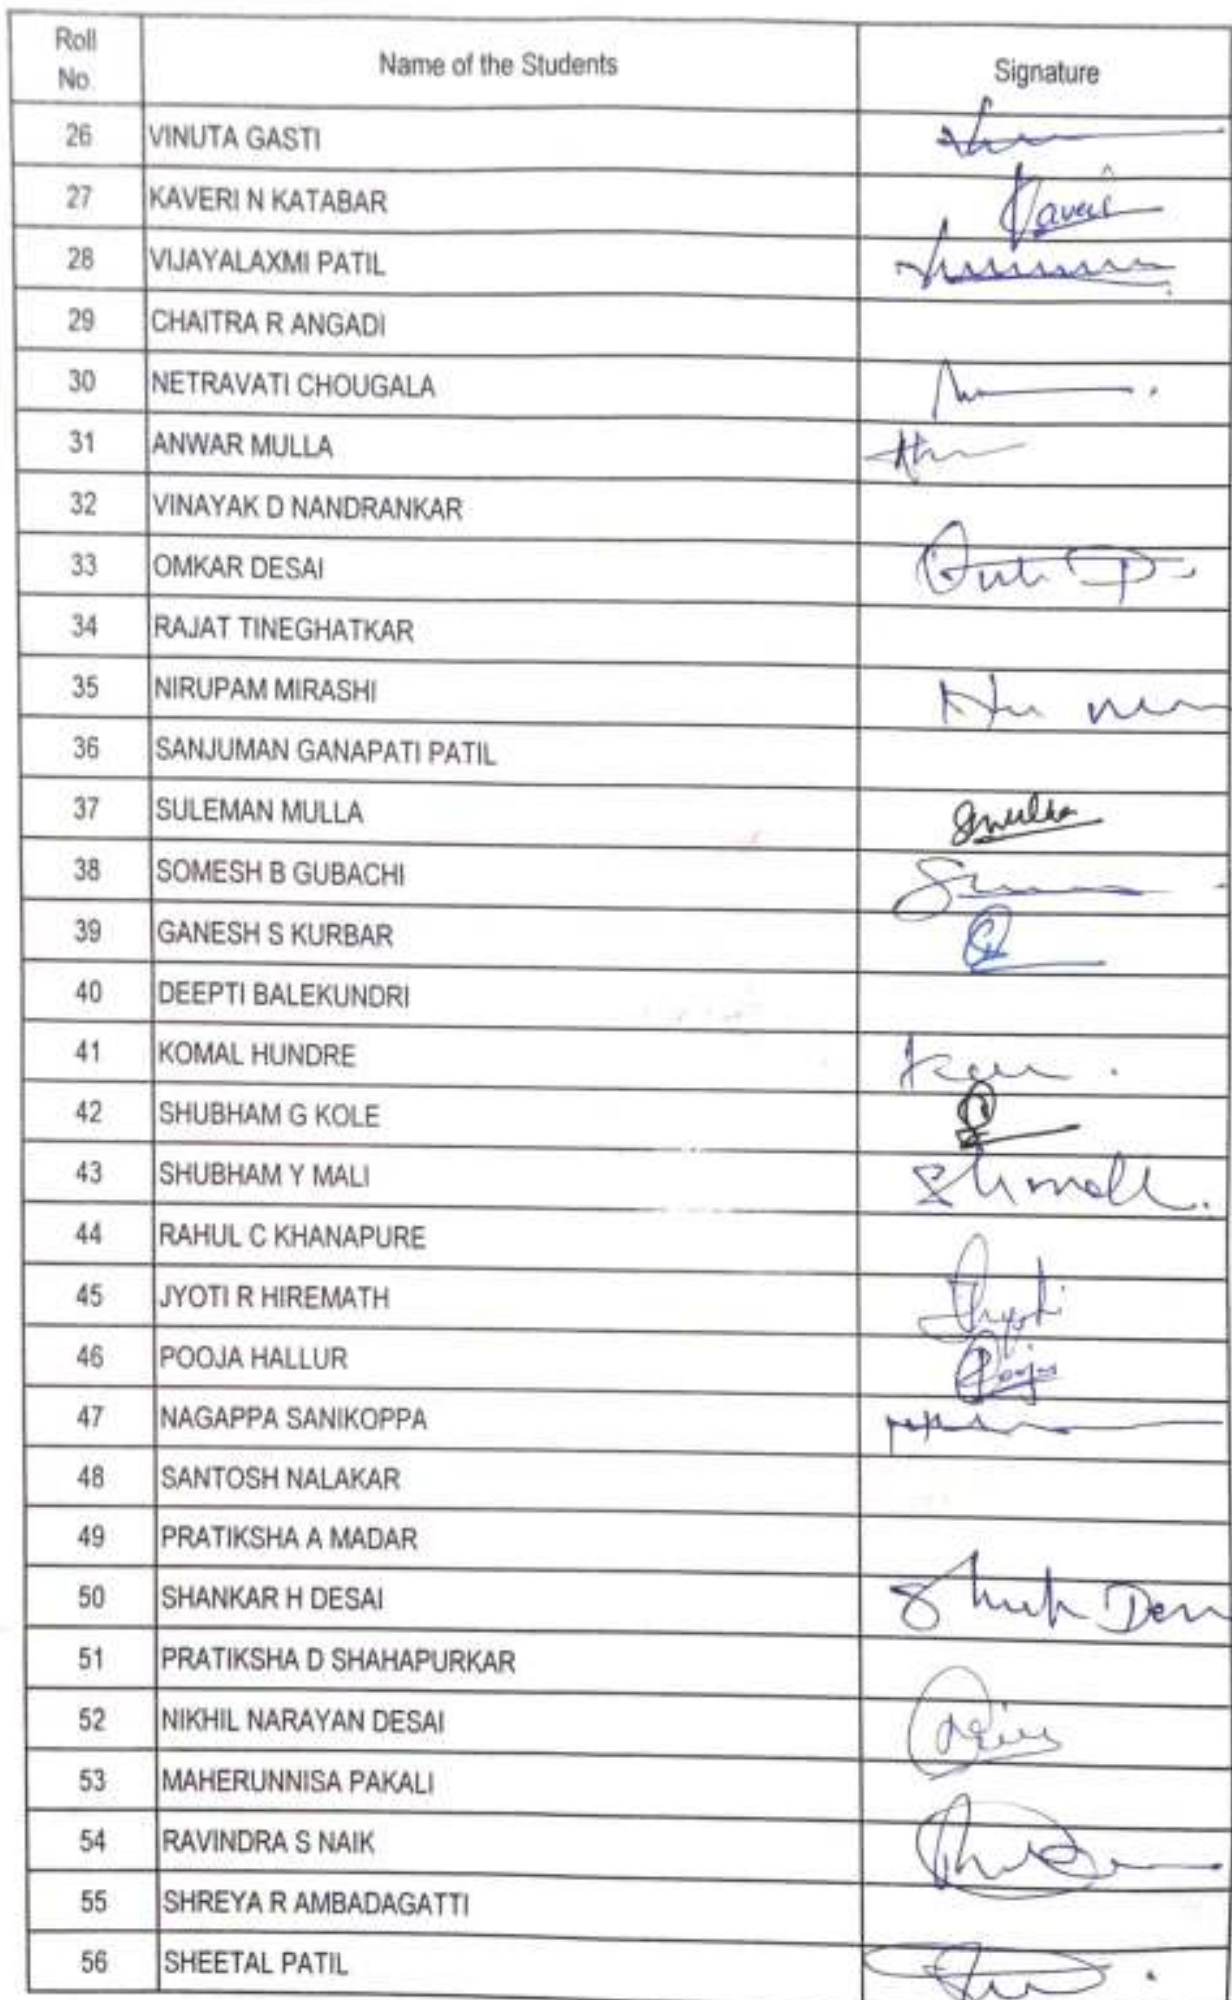 Roll No. Name of the Students Signature
26 VINUTA GASTI
27 KAVERI N KATABAR Kaveri
28 VIJAYALAXMI PATIL
29 CHAITRA R ANGADI
30 NETRAVATI CHOUGALA
31 ANWAR MULLA
32 VINAYAK D NANDRANKAR
33 OMKAR DESAI
34 RAJAT TINEGHATKAR
35 NIRUPAM MIRASHI
36 SANJUMAN GANAPATI PATIL
37 SULEMAN MULLA Smulla
38 SOMESH B GUBACHI
39 GANESH S KURBAR
40 DEEPTI BALEKUNDRI
41 KOMAL HUNDRE
42 SHUBHAM G KOLE
43 SHUBHAM Y MALI
44 RAHUL C KHANAPURE
45 JYOTI R HIREMATH Jyoti
46 POOJA HALLUR Pooja
47 NAGAPPA SANIKOPPA
48 SANTOSH NALAKAR
49 PRATIKSHA A MADAR
50 SHANKAR H DESAI
51 PRATIKSHA D SHAHAPURKAR
52 NIKHIL NARAYAN DESAI
53 MAHERUNNISA PAKALI
54 RAVINDRA S NAIK
55 SHREYA R AMBADAGATTI
56 SHEETAL PATIL